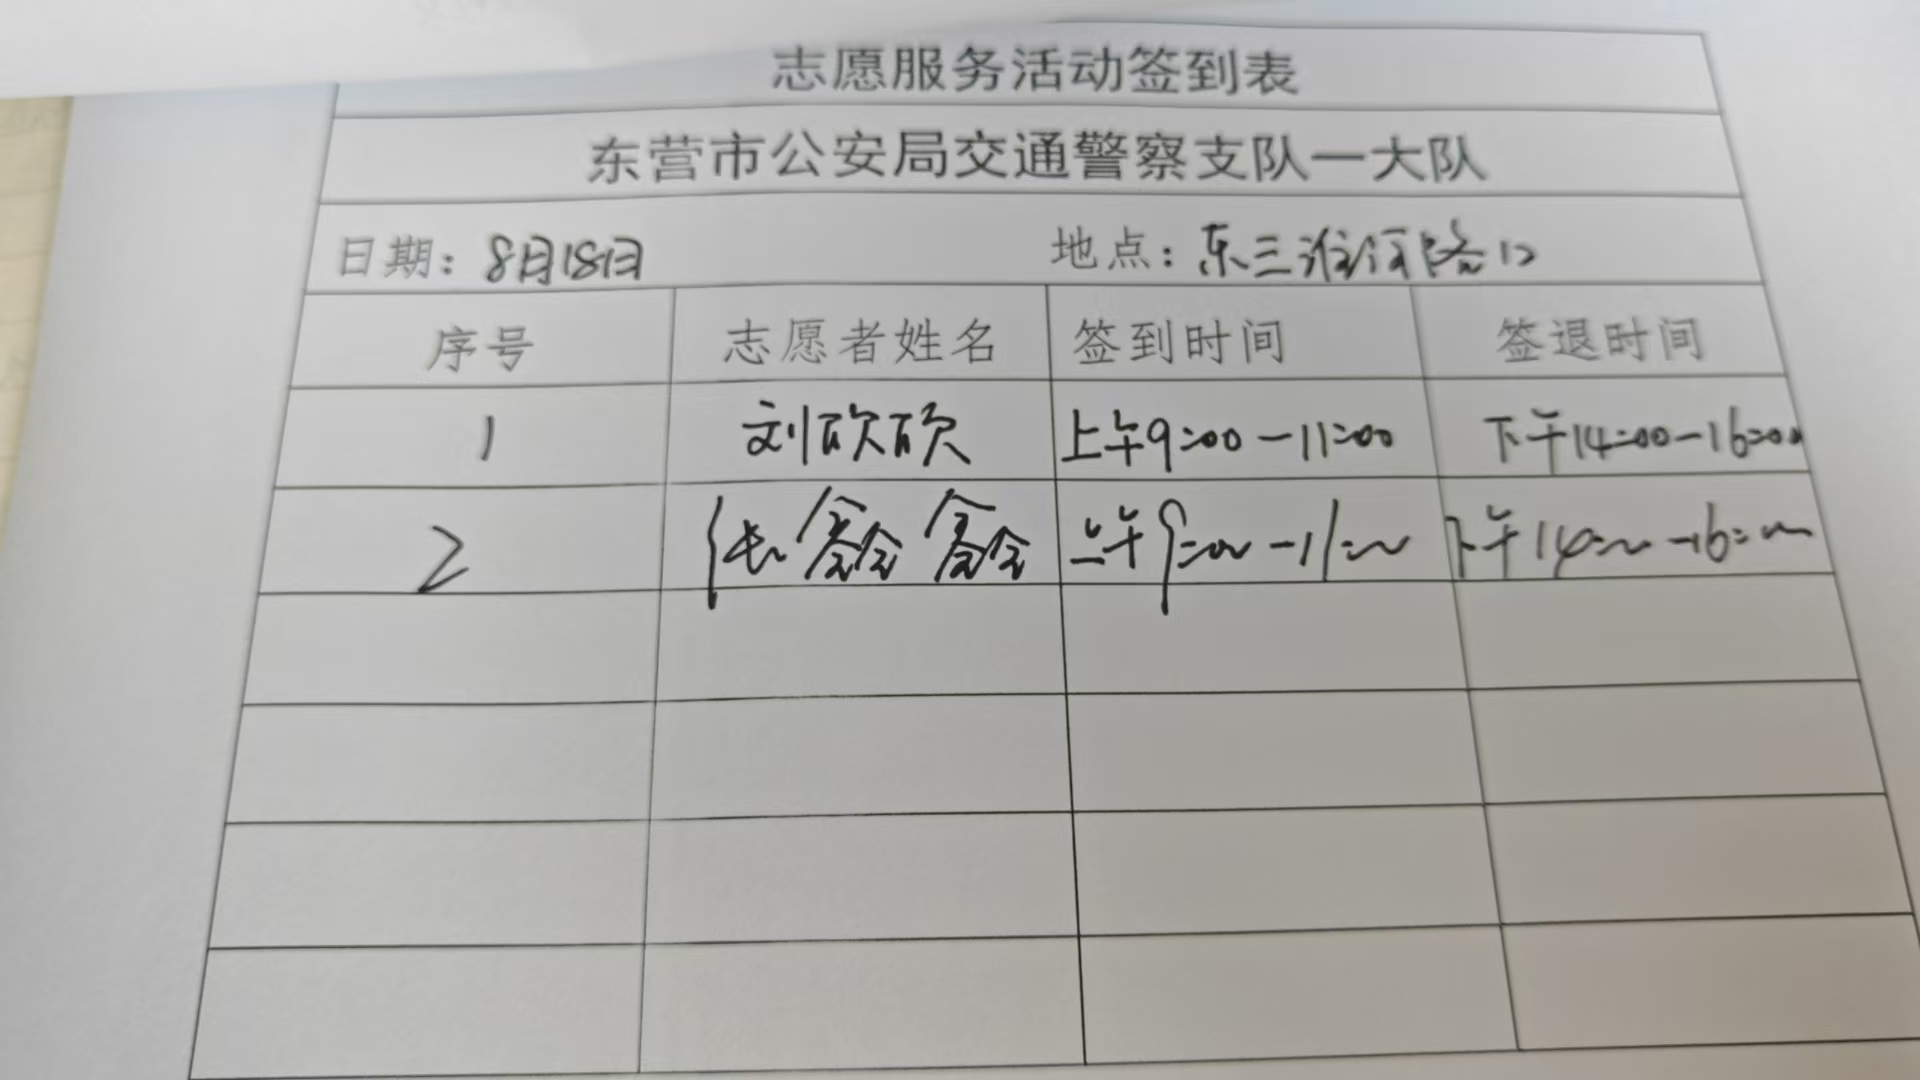 志愿服务活动签到表
东营市公安局交通警察支队一大队
日期：8月18日 地点：东三淮河路口
序号 志愿者姓名 签到时间 签退时间
1 刘欣欣 上午9:00-11:00 下午14:00-16:00
2 张鑫鑫 上午9:00-11:00 下午14:00-16:00